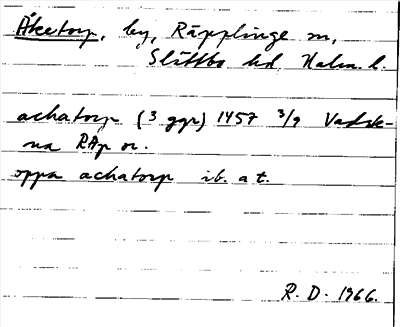 Åketorp, by, Räpplinge sn,
Slättbo hd, Kalm. l.
achatorp (3 ggr) 1457 3/9 Vadste-
na RAp or.
oppa achatorp ib. a t.
R. D. 1966.